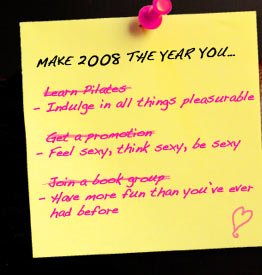 MAKE 2008 THE YEAR YOU...
Learn Pilates
- Indulge in all things pleasurable
Get a promotion
- Feel sexy, think sexy, be sexy
Join a book group
- Have more fun than you've ever
had before